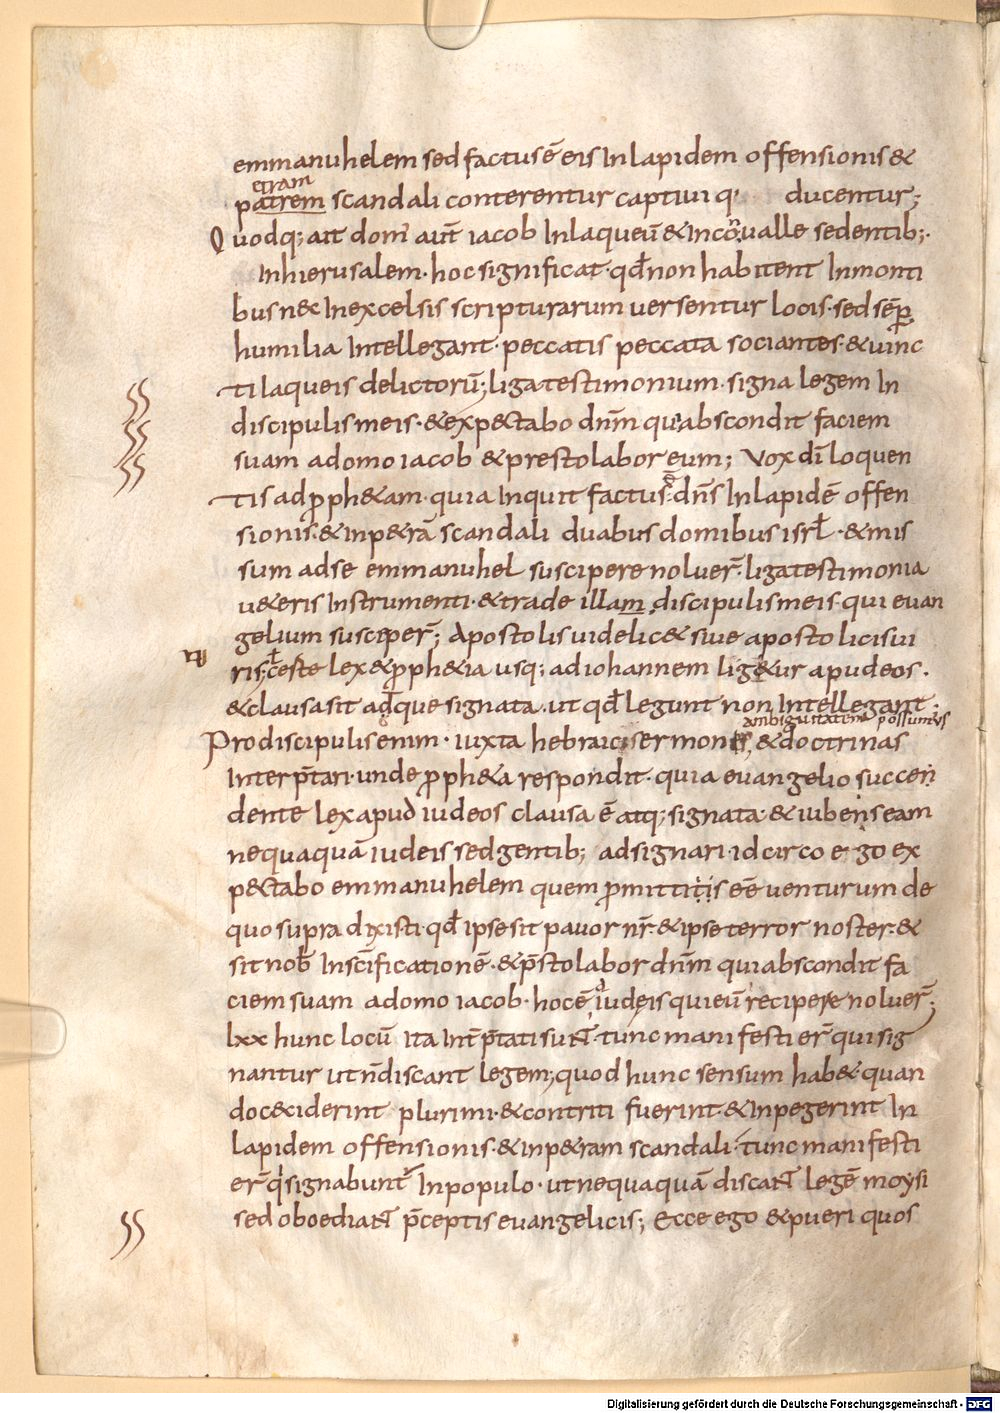 emmanuhelem sed factus ē eis In lapidem offensionis &
etram
patrem scandali conterentur captiui q· ducentur;
Quodq; ait dom' aut̄ iacob In laqueū & In conualle sedentib;·
In hierusalem· hoc significat· qđ non habitent In monti
bus n& In excelsis scripturarum uersentur locis· sed sēp̱
humilia Intellegant· peccatis peccata sociantes· & uinc
ti laqueis delictorū; liga testimonium· signa legem In
discipulis meis· & exp&tabo dn̄m qui abscondit faciem
suam a domo iacob & prestolabor eum; Vox dī loquen
tis ad ꝓph&am· quia Inquit factus ē dn̄s In lapidē offen
sionis· & In p&rā scandali duabus domibus isrł· & mis
sum ad se emmanuhel suscipere noluer̄· liga testimonia
u&eris Instrumenti· & trade illam discipulis meis· qui euan
gelium susceper̄; Apostolis uidelic& siue apostolicis ui
ris; c̄ este lex & ꝓph&ia usq; ad iohannem lig&ur apud eos·
& clausa sit adque signata· ut qđ legunt non Intellegant;
ambiguitatem possumus
Pro discipulis enim· iuxta hebraici sermones, & doctrinas
Interp̄tari· unde ꝓph&a respondit· quia euangelio succen
dente lex apud iudeos clausa ē atq; signata· & iubens eam
nequaquā iudeis sed gentib; adsignari· idcirco ego ex
p&tabo emmanuhelem quem ꝓmittitis eē uenturum de
quo supra dixisti· qđ ipse sit pauor nr̄· & ipse terror noster· &
sit nob̄ In sc̄ificationē· & p̄stolabor dn̄m qui abscondit fa
ciem suam a domo iacob· hoc ē iudeis qui eū recipere noluer̄;
lxx hunc locū ita Int̄p̄tati sunt· tunc manifesti er̄ qui sig
nantur ut n̄ discant legem; quod hunc sensum hab&· quan
do c&iderint plurimi· & contriti fuerint· & Inpegerint In
lapidem offensionis· & In p&ram scandali· tunc manifesti
er̄ qui signabunt̄ In populo· ut nequaquā discant legē moysi
sed oboediant p̄ceptis euangelicis; Ecce ego & pueri quos
Digitalisierung gefördert durch die Deutsche Forschungsgemeinschaft - DFG